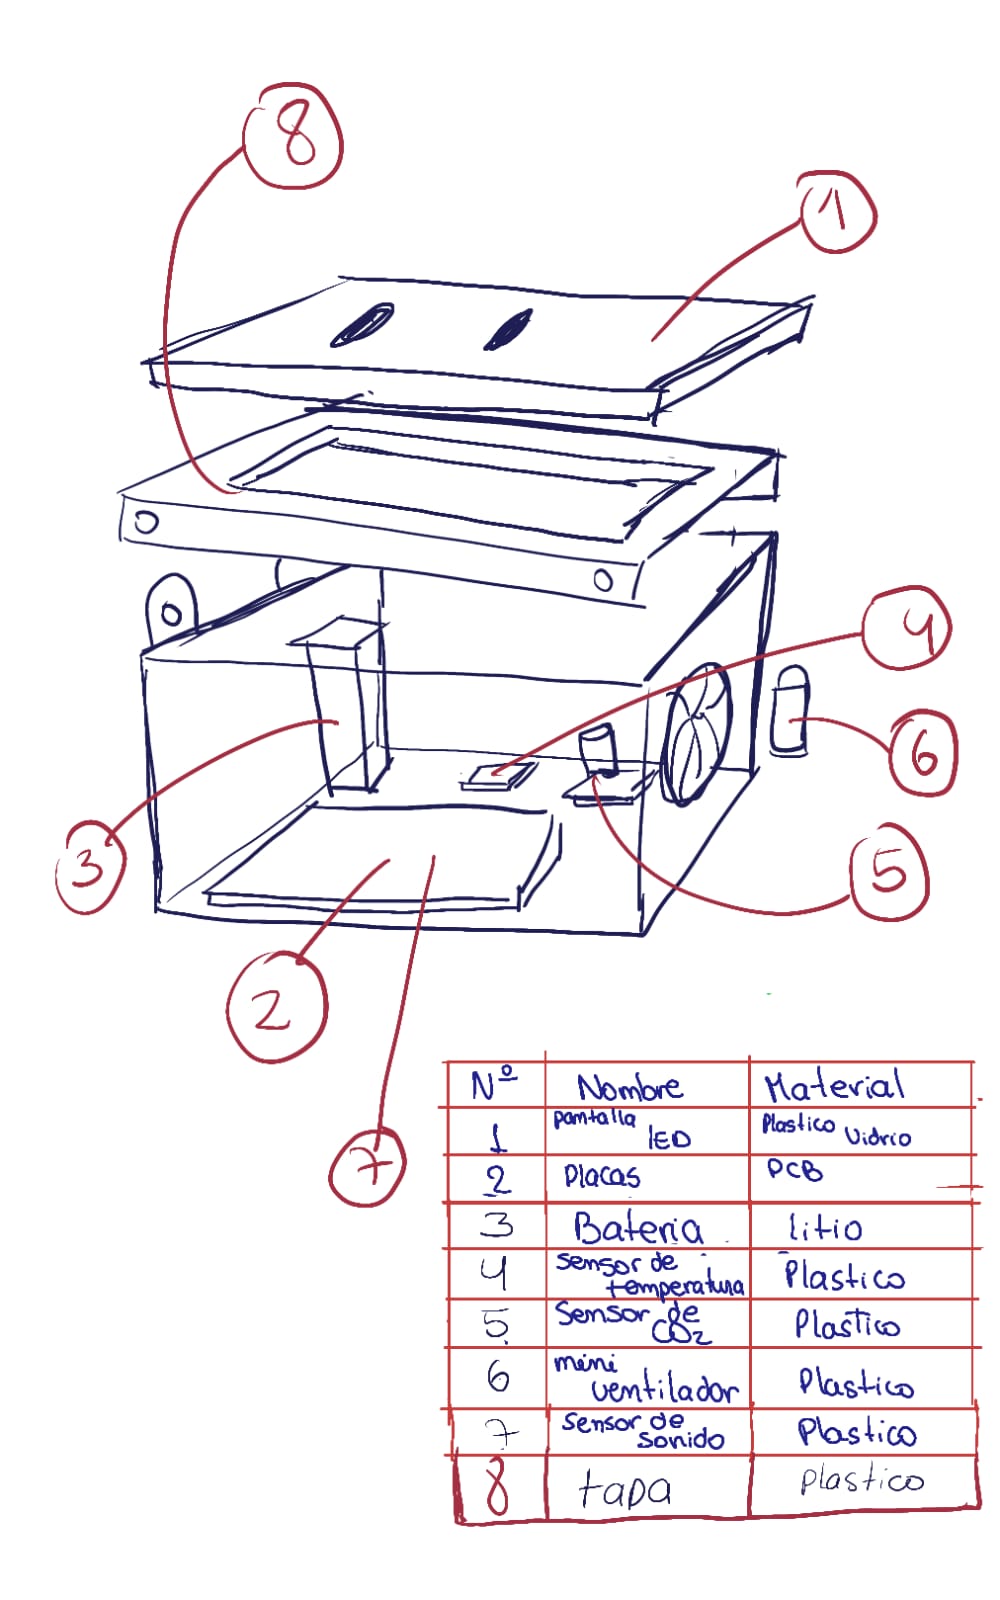 8
1
4
6
3
5
2
7
Nº Nombre Material
1 pantalla LED Plastico Vidrio
2 Placas PCB
3 Bateria litio
4 sensor de temperatura Plastico
5 Sensor de CO2 Plastico
6 mini ventilador Plastico
7 sensor de sonido Plastico
8 tapa plastico